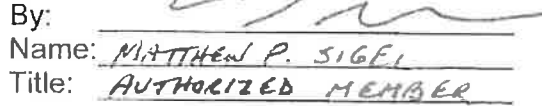 By:
Name: MATTHEW P. SIGEL
Title: AUTHORIZED MEMBER